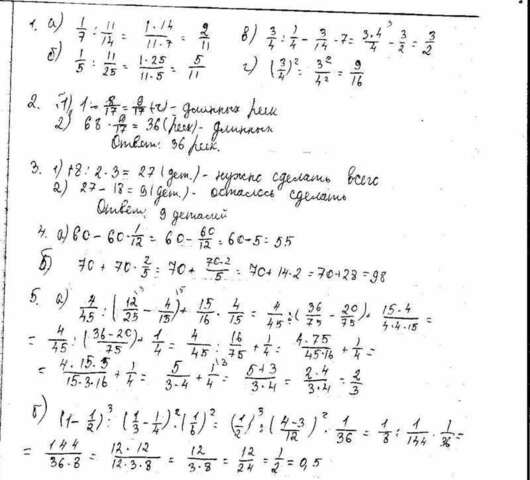 1. а) 1/7 : 11/14 = 1·14/11·7 = 2/11 в) 3/4 : 1/4 - 3/14 · 7 = 3·4/4 - 3/2 = 3/2
б) 1/5 : 11/25 = 1·25/11·5 = 5/11 г) (3/4)² = 3²/4² = 9/16
2. 1) 1 - 8/17 = 9/17 (ч) - длинных реек
2) 68 · 9/17 = 36 (реек) - длинных
Ответ: 36 реек.
3. 1) 18 : 2 · 3 = 27 (дет.) - нужно сделать всего
2) 27 - 18 = 9 (дет.) - осталось сделать
Ответ: 9 деталей
4. а) 60 - 60 · 1/12 = 60 - 60/12 = 60 + 5 = 55
б) 70 + 70 · 2/5 = 70 + 70·2/5 = 70 + 14 · 2 = 70 + 28 = 98
5. а) 4/45 : (12/25 - 4/15) + 15/16 · 4/15 = 4/45 : (36/75 - 20/75) + 15·4/4·4·15 =
= 4/45 : (36-20/75) + 1/4 = 4/45 : 16/75 + 1/4 = 4·75/45·16 + 1/4 =
= 4·15·5/15·3·16 + 1/4 = 5/3·4 + 1/4 = 5+3/3·4 = 2·4/3·4 = 2/3
б) (1 - 1/2)³ : (1/3 - 1/4)² · (1/6)² = (1/2)³ : (4-3/12)² · 1/36 = 1/8 : 1/144 · 1/36 =
= 144/36·8 = 12·12/12·3·8 = 12/3·8 = 12/24 = 1/2 = 0,5